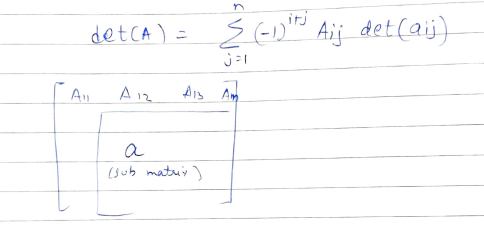 n
det(A) = Σ (-1)^{i+j} Aij det(aij)
j=1
A11 A12 A13 Am
a
(sub matrix)